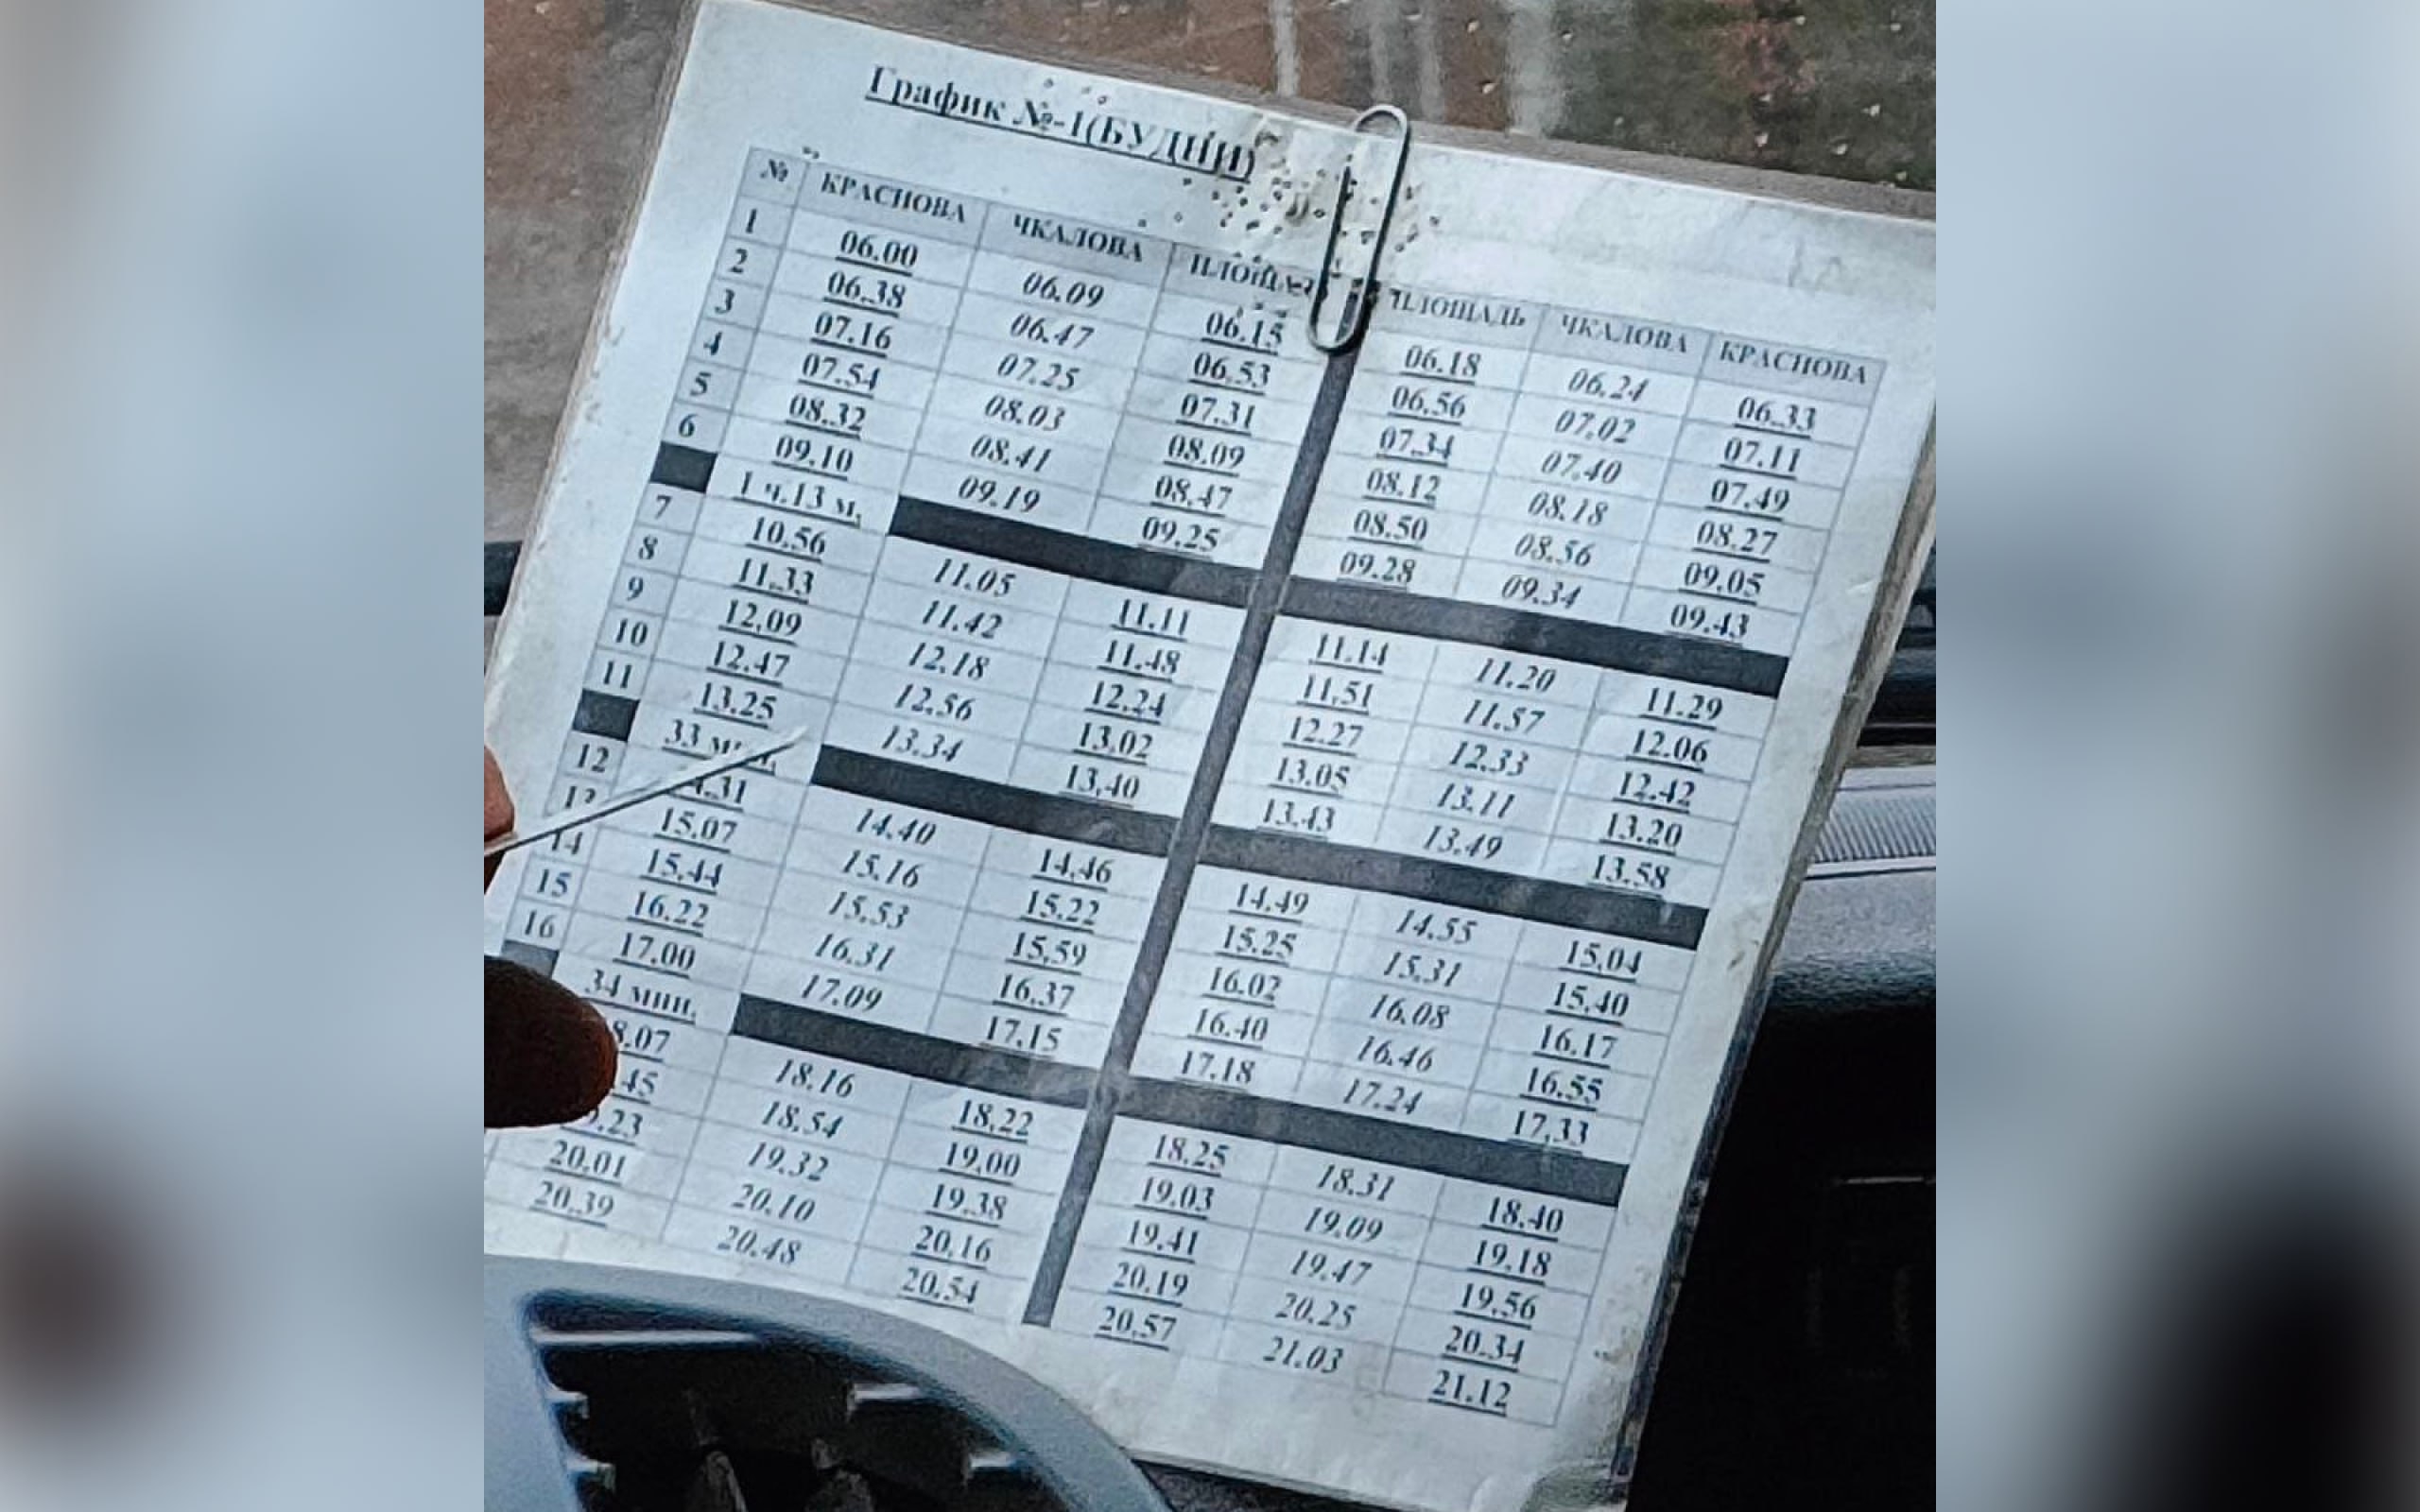 График №-1(БУДНИ)
№ КРАСНОВА ЧКАЛОВА ПЛОЩАДЬ ПЛОЩАДЬ ЧКАЛОВА КРАСНОВА
1 06.00 06.09 06.15 06.18 06.24 06.33
2 06.38 06.47 06.53 06.56 07.02 07.11
3 07.16 07.25 07.31 07.34 07.40 07.49
4 07.54 08.03 08.09 08.12 08.18 08.27
5 08.32 08.41 08.47 08.50 08.56 09.05
6 09.10 09.19 09.25 09.28 09.34 09.43
1 ч.13 м.
7 10.56 11.05 11.11 11.14 11.20 11.29
8 11.33 11.42 11.48 11.51 11.57 12.06
9 12.09 12.18 12.24 12.27 12.33 12.42
10 12.47 12.56 13.02 13.05 13.11 13.20
11 13.25 13.34 13.40 13.43 13.49 13.58
33
12 14.40 14.46 14.49 14.55 15.04
15.07 15.16 15.22 15.25 15.31 15.40
14 15.44 15.53 15.59 16.02 16.08 16.17
15 16.22 16.31 16.37 16.40 16.46 16.55
16 17.00 17.09 17.15 17.18 17.24 17.33
34 мин.
18.16 18.22 18.25 18.31 18.40
18.54 19.00 19.03 19.09 19.18
19.32 19.38 19.41 19.47 19.56
20.01 20.10 20.16 20.19 20.25 20.34
20.39 20.48 20.54 20.57 21.03 21.12